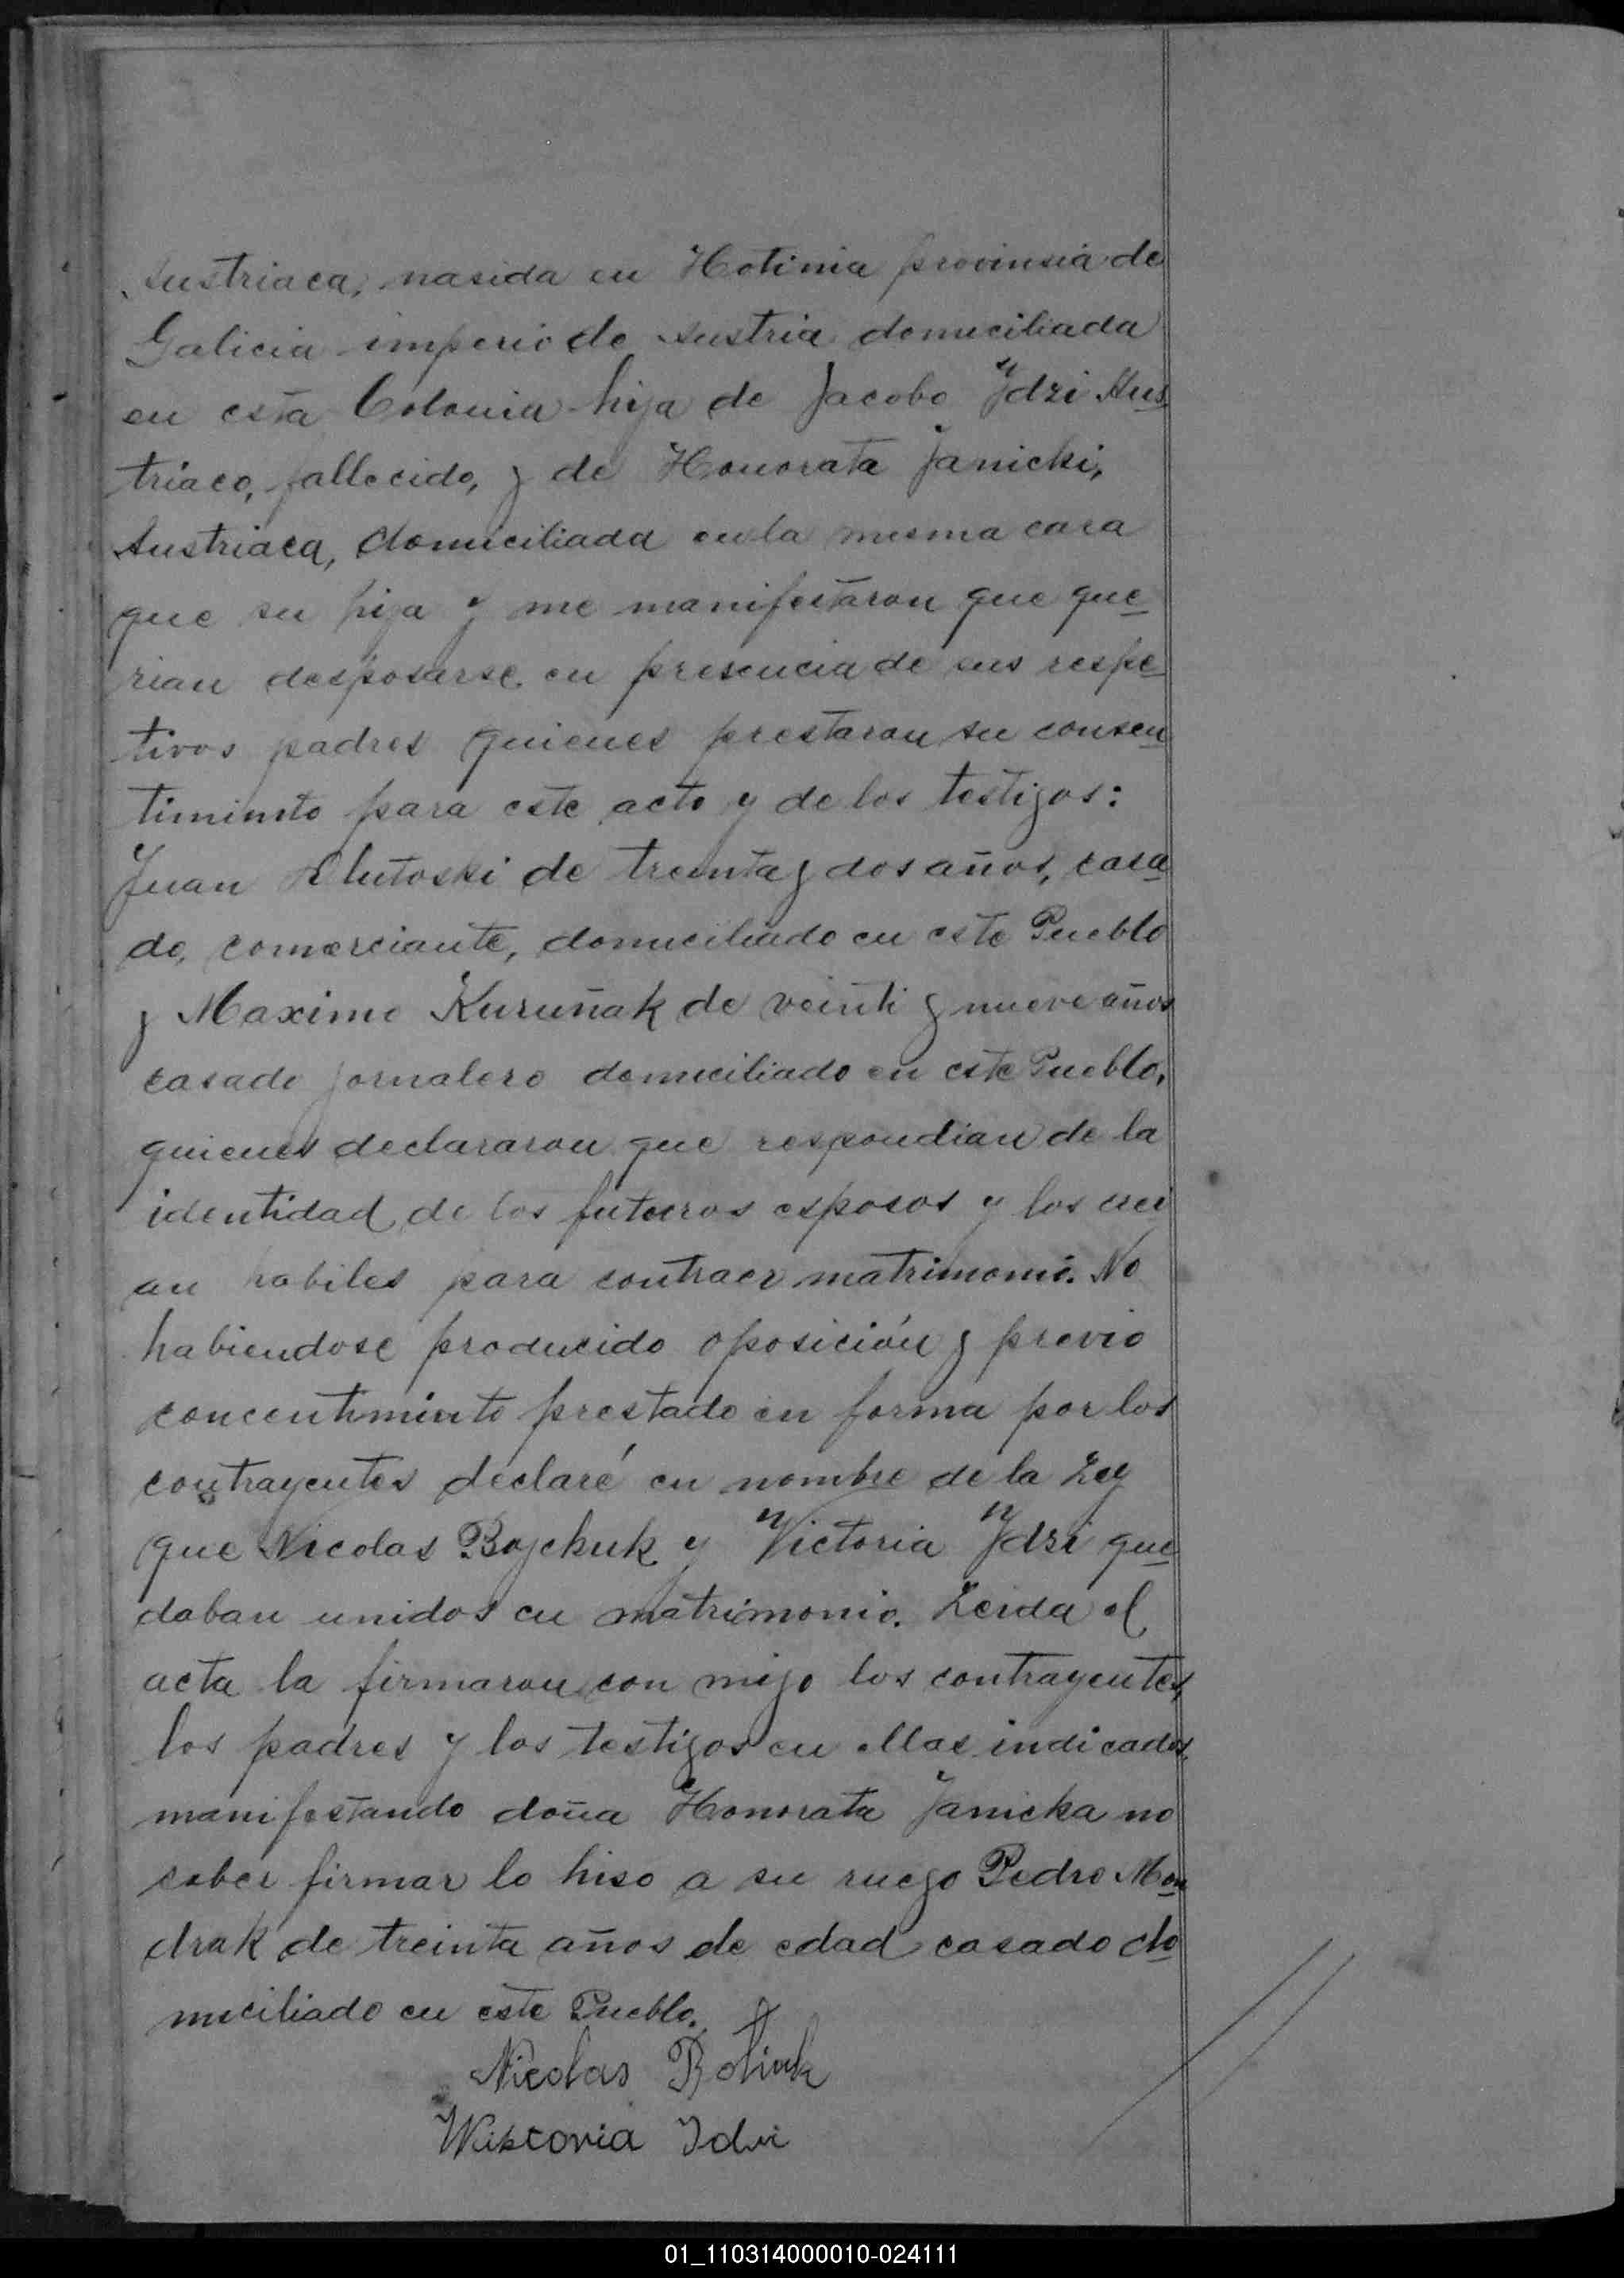 Austriaca, nasida en Hotinia provinsia de
Galicia imperio de Austria domiciliada
en esta Colonia hija de Jacobo Ydzi Aus
triaco, fallecido, y de Honorata Janicki,
Austriaca, domiciliada en la mesma casa
que su hija y me manifestaron que que
rian desposarse en presencia de sus respe
tivos padres quienes prestaron su consen
timinto para este acto y de los testigos:
Juan Dlutoski de treinta y dos años, casa
do, comerciante, domiciliado en este Pueblo
y Maximo Kuruñak de veinti y nueve años
casado jornalero domiciliado en este Pueblo,
quienes declararon que respondian de la
identidad de los futuros esposos y los crei
an habiles para contraer matrimonio. No
habiendose producido oposición y previo
concentimiento prestado en forma por los
contrayentes declaré en nombre de la Ley
que Nicolas Bojchuk y Victoria Ydzi que
daban unidos en matrimonio. Leida el
acta la firmaron con migo los contrayentes,
los padres y los testigos en ellas indicados,
manifestando doña Honorata Janicka no
saber firmar lo hiso a su ruego Pedro Mon
drak de treinta años de edad casado do
miciliado en este Pueblo.
Nicolas
Wiktoria Idzi
01_110314000010-024111